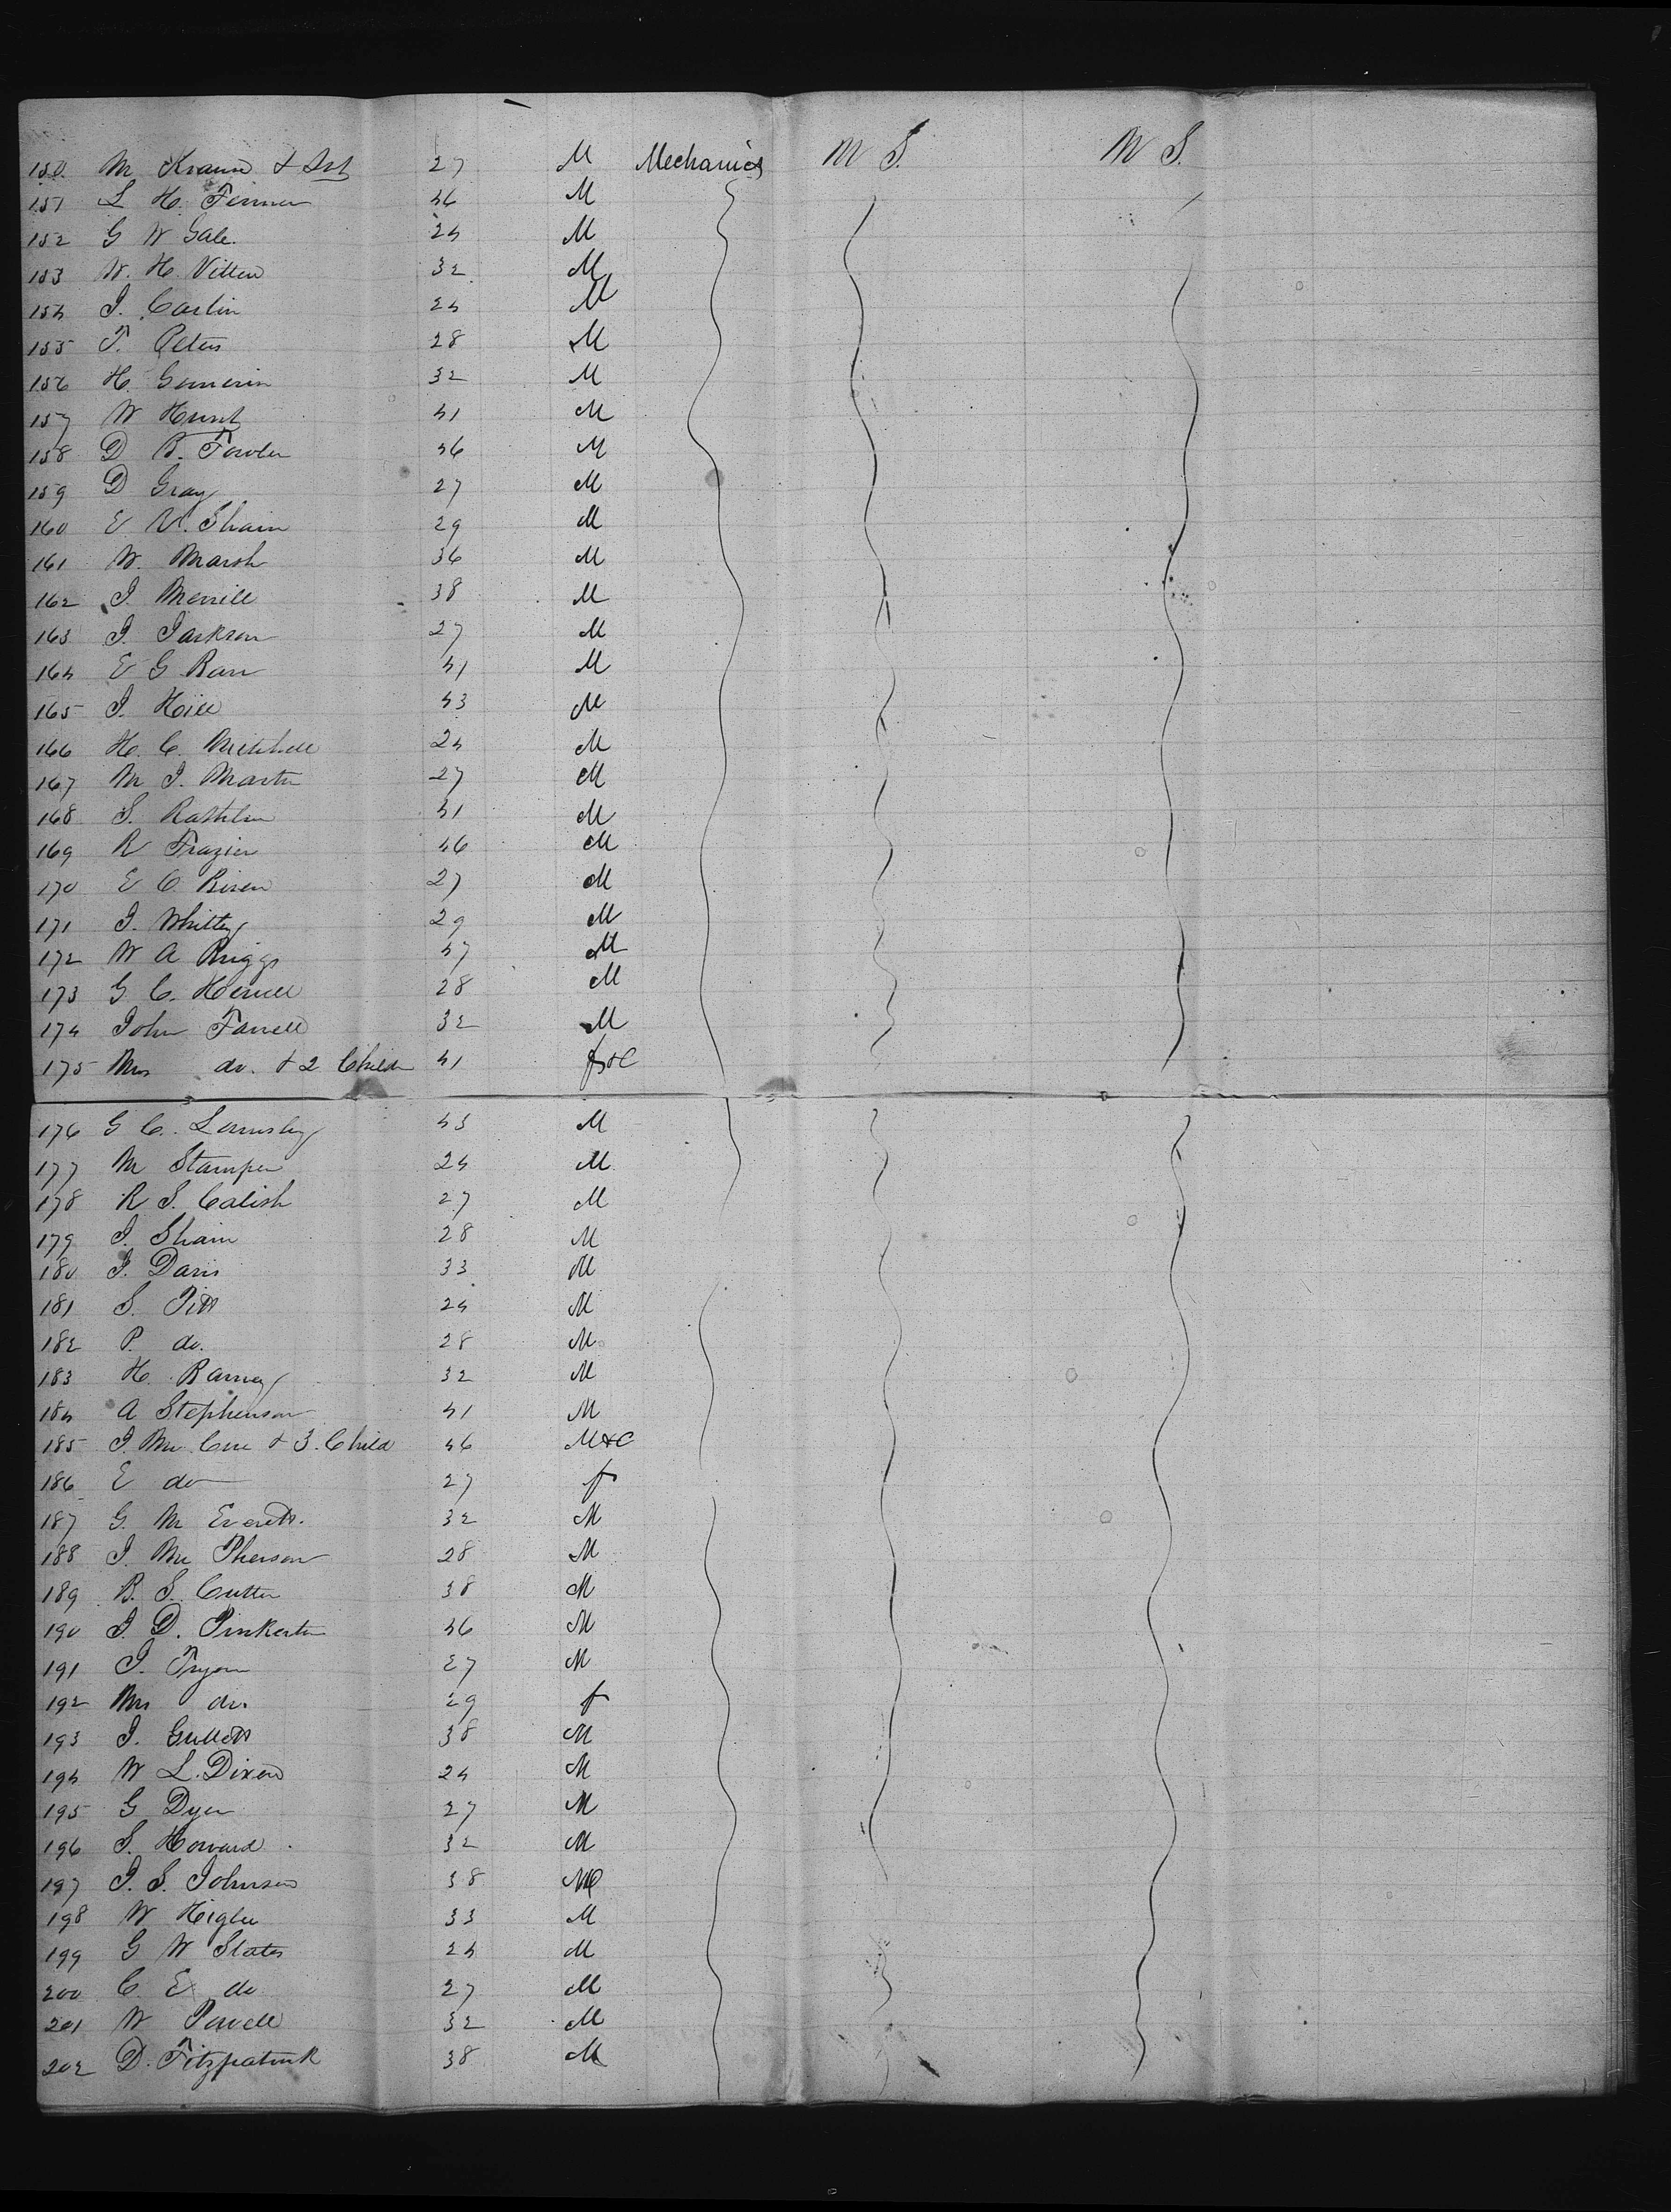 150. M Kraum & Srt 27 M Mechanics M S. M S.
151 L H. Fenner 46 M
152 G W Gale. 24 M
153 W. H. Vitten 32 M
154 J. Carlin 24 M
155 T. Peters 28 M
156 H. Gemerin 32 M
157 W Hunt 41 M
158 D B. Fowler 46 M
159 D Gray 27 M
160 E V. Shain 29 M
161 W. Marsh 36 M
162 J. Merrill 38 M
163 J. Jackson 27 M
164 E G Ran 41 M
165 J. Hill 43 M
166 H. C. Mitchell 24 M
167 M J. Martin 27 M
168 S. 41 M
169 R Frazier 46 M
170 E C. Rixen 27 M
171 J. Whitty 29 M
172 W A Briggs 47 M
173 G C. 28 M
174 John Farrell 32 M
175 Mrs do. & 2 Childn 41 f&C
176 G C. 43 M
177 M Stamper 24 M
178 R S. Calish 27 M
179 J. Shain 28 M
180 J. Davis 33 M
181 S. Pitt 24 M
182 P. do. 28 M
183 H. Ramey 32 M
184 A Stephenson 41 M
185 J. Mc Cue & 3. Child 46 M&C
186 E do 27 f
187 G. M Everett. 32 M
188 J. Mc Pherson 28 M
189 B. S. Cutter 38 M
190 J. D. Pinkerton 46 M
191 J. Tryon 27 M
192 Mrs do. 29 f
193 J. Gullett 38 M
194 W L. Dixon 24 M
195 G Dyer 27 M
196 S. Howard 32 M
197 J. S. Johnson 38 M
198 W Higbee 33 M
199 G W Slater 24 M
200 C. E do 27 M
201 W Powell 32 M
202 D. Fitzpatrick 38 M